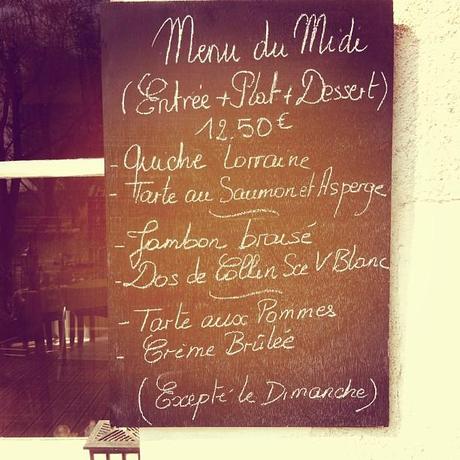 Menu du Midi
(Entrée + Plat + Dessert)
12.50€
- Quiche Lorraine
- Tarte au Saumon et Asperge
- Jambon braisé
- Dos de Collin Sce V Blanc
- Tarte aux Pommes
- Crème Brûlée
(Excepté le Dimanche)